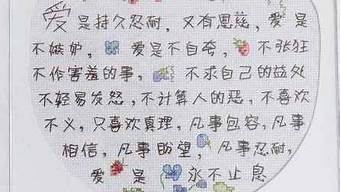 爱是持久忍耐，又有恩慈，爱是
不嫉妒，爱是不自夸，不张狂
不作害羞的事，不求自己的益处
不轻易发怒，不计算人的恶，不喜欢
不义，只喜欢真理，凡事包容，凡事
相信，凡事盼望，凡事忍耐，
爱是永不止息